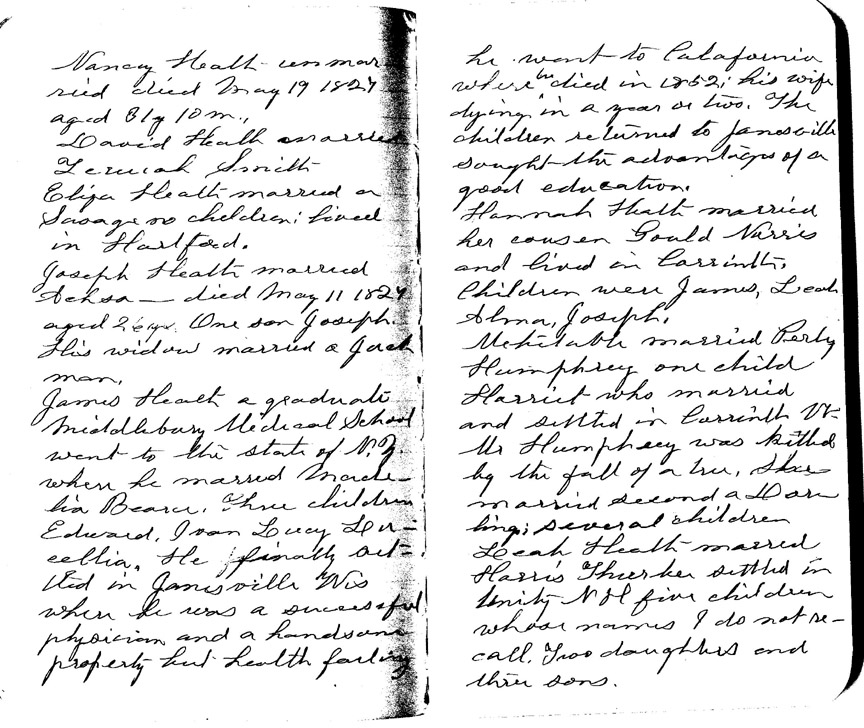 Nancy Heath unmar
ried died May 19 1827
aged 31y 10m.,
David Heath married
Zeruiah Smith
Eliza Heath married a
Savage no children; lived
in Hartford.
Joseph Heath married
Achsa — died May 11 1827
aged 26 yr. One son Joseph.
His widow married a Jack
man.
James Heath a graduate
Middlebury Medical School
went to the state of N.Y.
where he married Made-
lia Bearce. Three children
Edward, Ivan Lucy Lu-
cellia. He finally set-
tled in Janesville Wis
where he was a successful
physician and a handsome
property but health failing
he went to Calafornia
where he died in 1852; his wife
dying in a year or two. The
children returned to Janesville
sought the advantages of a
good education.
Hannah Heath married
her cousen Gould Norris
and lived in Corrinth.
Children were James, Leah
Alma, Joseph.
Mehitable married Perly
Humphrey one child
Harriet who married
and settled in Corrinth Vt.
Mr Humphrey was killed
by the fall of a tree. She
married second a Dar
ling; several children
Leah Heath married
Harris settled in
Unity N H five children
whose names I do not re-
call. Two daughters and
three sons.